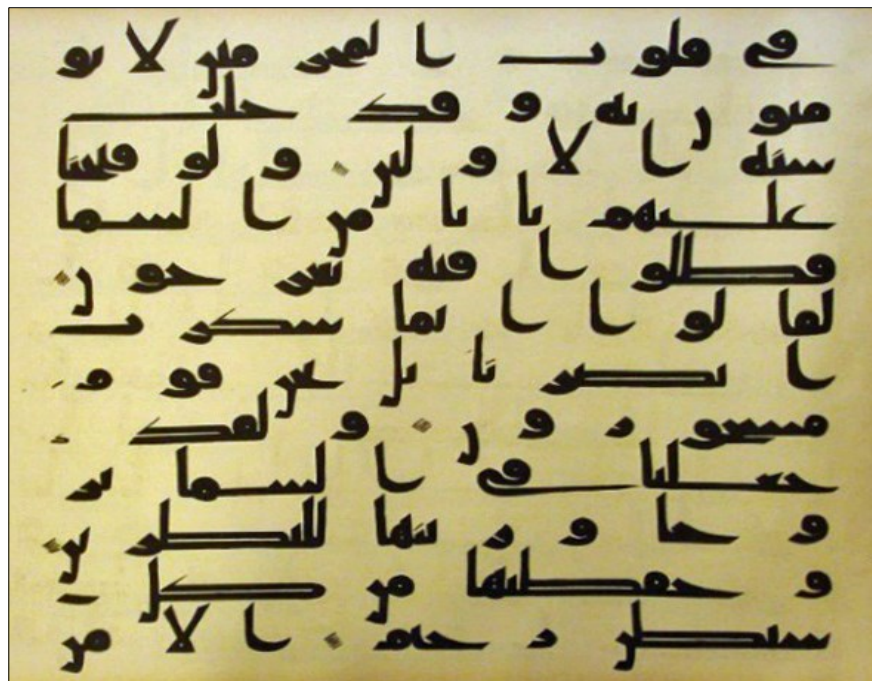 في قلوب المجرمين لا يو
منون به وقد خلت
سنة الاولين ولو فتحنا
عليهم بابا من السما
فظلوا فيه يعرجون
لقالوا انما سكرت
ابصرنا بل نحن قوم
مسحورون ولقد
جعلنا في السما بر
وجا وزينها للنظرين
وحفظنها من كل
شيطن رجيم الا من